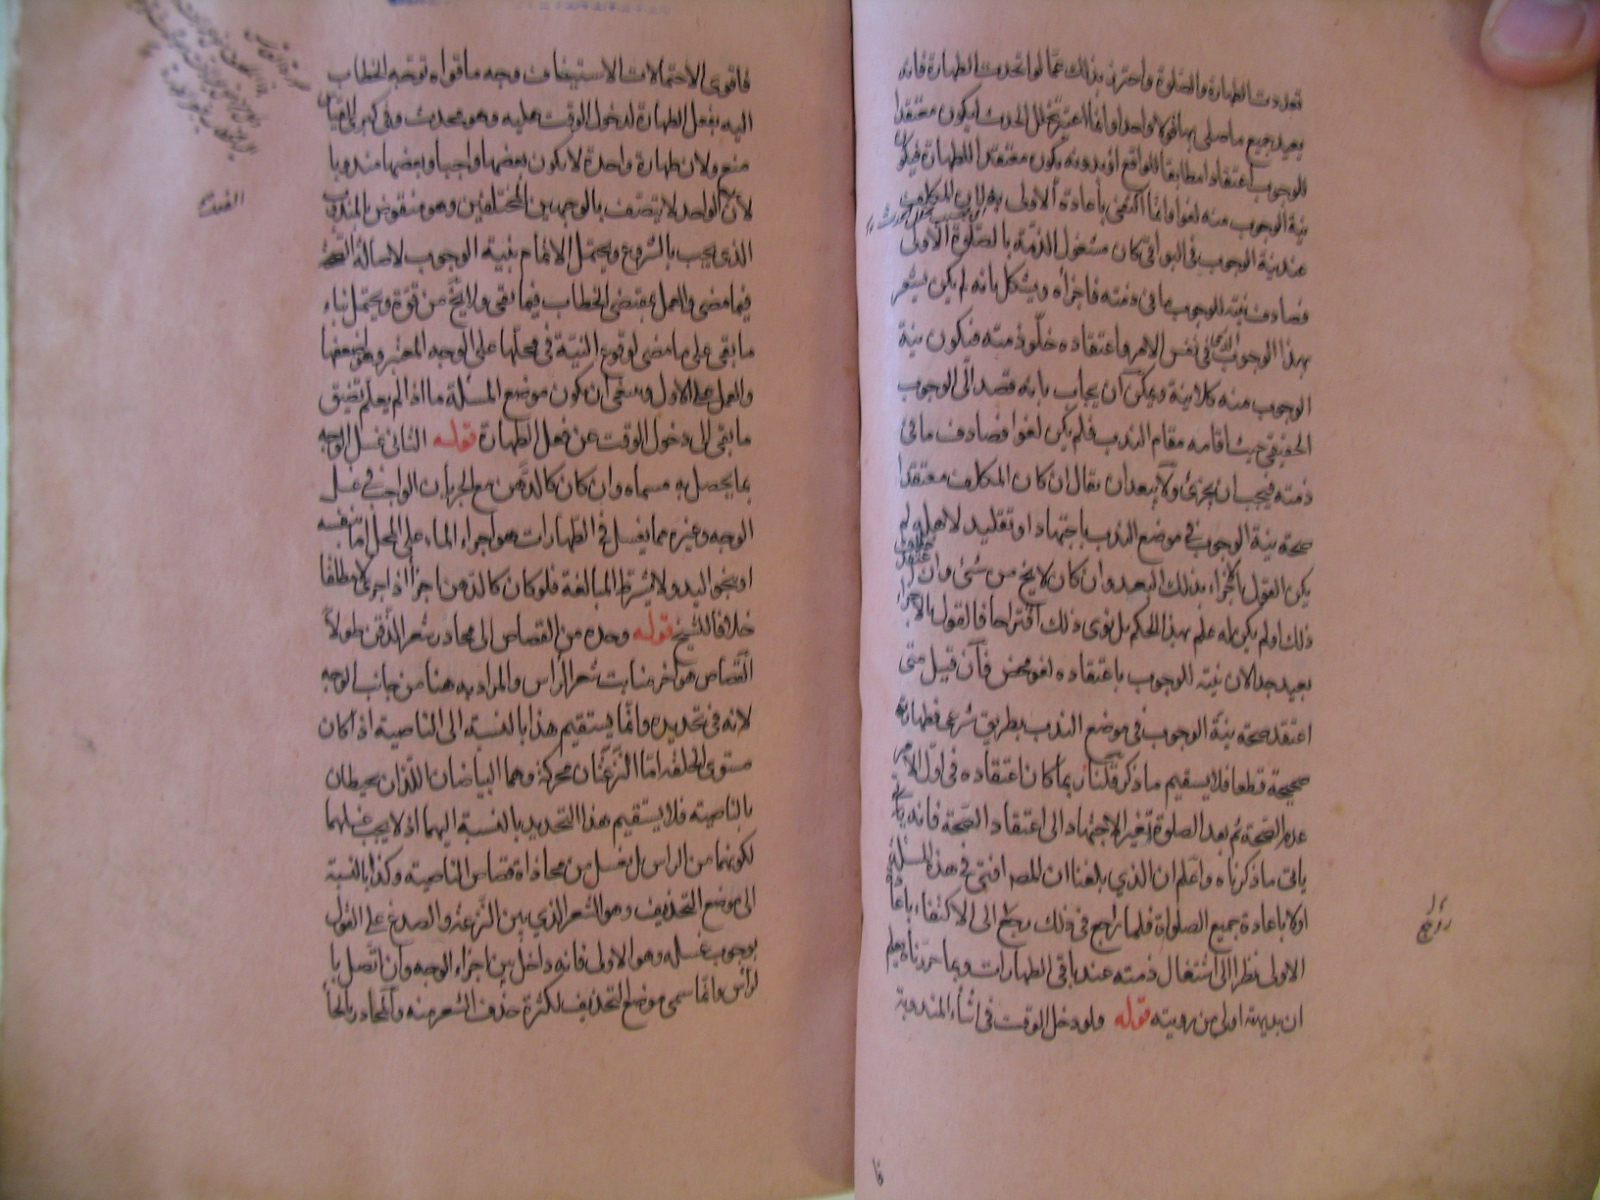 تعددت الطهارة والصلوة واحترز بذلك عما لو اتحدت الطهارة فانه
يعيد جميع ما صلى بها قولا واحدا وانما اعتبر تخلل الحدث ليكون معتقدا
للوجوب اعتقادا مطابقا للواقع اذ بدونه يكون معتقدا للطهارة فيكون
نية الوجوب منه لغوا وانما اكتفى باعادة الاولى
عند نية الوجوب في البواقي كان مشغول الذمة بالصلوة الاولى
فصادف نية الوجوب ما في ذمته فاجزأه ويشكل بانه لم يكن يشعر
بهذا الوجوب الذي في نفس الامر واعتقاده خلو ذمته فتكون نية
الوجوب منه كلا نية ويمكن ان يجاب بانه قصد الى الوجوب
الحقيقي حيث اقامه مقام الندب فلم يكن لغوا فصادف ما في
ذمته فيجب ان يجزئ ولا يبعد ان يقال ان كان المكلف معتقدا
صحة نية الوجوب في موضع الندب باجتهاد او تقليد لاهله لم
يكن القول بالاجزاء بذلك البعيد وان كان لا يخ من شئ وان
ذلك او لم يكن له علم بهذا الحكم بل نوى ذلك اقتراحا فالقول بالاجزاء
بعيد جدا لان نيته للوجوب باعتقاده لغو محض فان قيل متى
اعتقد صحة نية الوجوب في موضع الندب بطريق شرعي فطهارته
صحيحة قطعا فلا يستقيم ما ذكر قلنا ربما كان اعتقاده في اول الامر
عدم الصحة ثم بعد الصلوة تغير الاجتهاد الى اعتقاد الصحة فانه
يأتي ما ذكرناه واعلم ان الذي بلغنا ان المصـ افتى في هذه المسئلة
اولا باعادة جميع الصلواة فلما روجع في ذلك رجع الى الاكتفاء باعادة
الاولى نظرا الى اشتغال ذمته عند باقي الطهارات وبما حررناه يعلم
ان بديهته اولى من رويته قوله ولو دخل الوقت في اثناء المندوبة
روجع
فا
فاقوى الاحتمالات الاستيناف وجه ما قواه توجه الخطاب
اليه بفعل الطهارة لدخول الوقت عليه وهو محدث وفي كبرى القياس
منع ولان طهارة واحدة لا يكون بعضها واجبا وبعضها مندوبا
لان الواحد لا يتصف بالوجهين المختلفين وهو منقوض بالمندوب
الذي يجب بالشروع ويحتمل الاتمام بنية الوجوب لاصالة الصحة
فيما مضى والعمل بمقتضى الخطاب فيما بقى ولا يخ من قوة ويحتمل بناء
ما بقى على ما مضى لوقوع النية في محلها على الوجه المعتبر وهو اضعفها
والعمل على الاول وينبغي ان يكون موضع المسئلة ما اذا لم يعلم تضيق
ما بقى الى دخول الوقت عن فعل الطهارة قوله الثاني غسل الوجه
بما يحصل به مسماه وان كان كالدهن مع الجريان الواجب في غسل
الوجه وغيره مما يغسل في الطهارات هو اجراء الماء على المحل اما بنفسه
او بنحو اليد ولا يشترط المبالغة فلو كان كالدهن اجزأ اذا جرى لا مطلقا
خلافا للشيخ قوله وحده من القصاص الى محادر شعر الذقن طولا
القصاص هو آخر منابت شعر الرأس والمراد به هنا من جانب الوجه
لانه في تحديده وانما يستقيم هذا بالنسبة الى الناصية اذا كان
مستوى الخلقة اما النزعتان محركة وهما البياضان اللذان يحيطان
بالناصية فلا يستقيم هذا التحديد بالنسبة اليهما اذ لا يجب غسلهما
لكونهما من الراس بل يغسل من محاذاة قصاص الناصية وكذا بالنسبة
الى موضع التحذيف وهو الشعر الذي بين النزعة والصدغ على القول
بوجوب غسله وهو الاولى فانه داخل بين اجزاء الوجه وان اتصل با
لرأس وانما سمى موضع التحذيف لكثرة حذف الشعر منه والمحادر بالحا